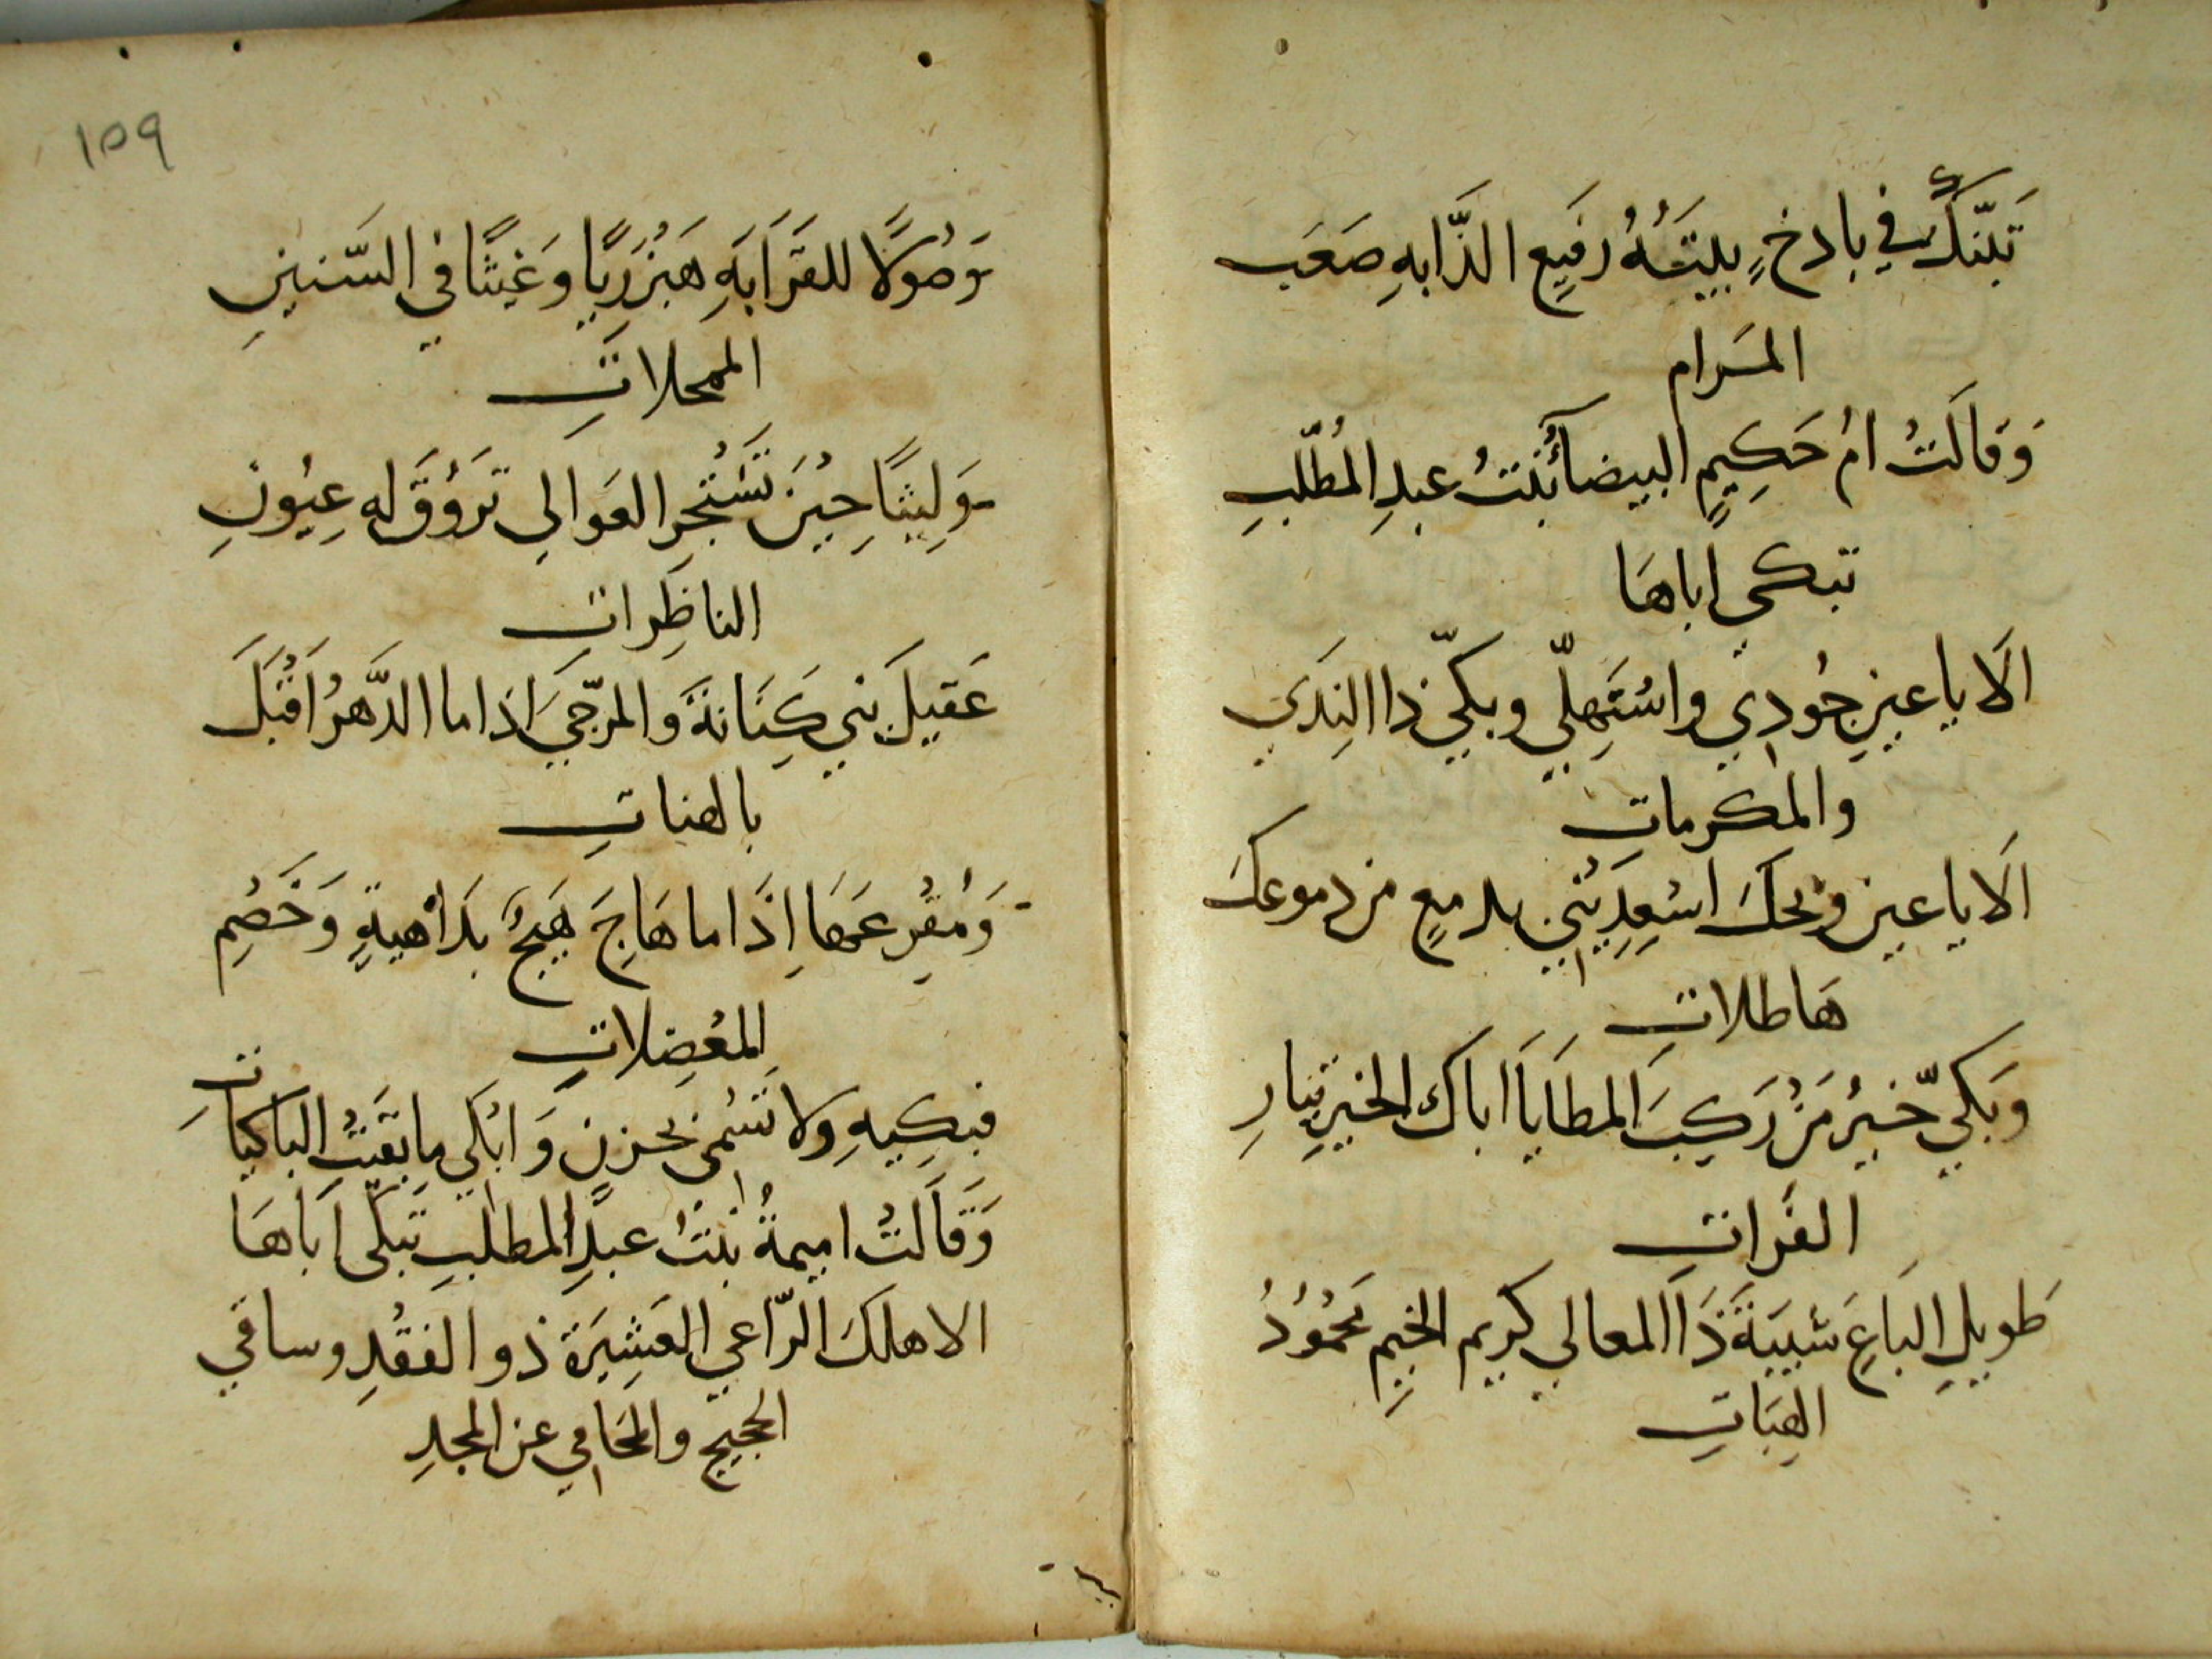 تَبَنَّكَ في باذخٍ بيتُهُ رفيعِ الذَّابهِ صَعَب
المَرام
وَقَالَتْ امُ حَكِيمٍ البيضآءُ بنتُ عبدِ المُطّلبِ
تبكي اباهَا
الَا يا عينِ جُودِي واسْتَهِلّي وبكّي ذا النِدَي
والمكرماتِ
الَا يا عين ويحكَ اسْعِدِيْنِي بدمعٍ من دموعك
هَاطلاتِ
وَبَكيّ خيْرُ مَنْ رَكِبَ المطَايَا اباك الخيرِ تيارِ
الفَراتِ
طويلِ البَاعِ شَيْبَةَ ذَا المعالي كريم الخيِمِ مَحْمُوُدُ
الهِبَاتِ
١٥٩
وَصُولًا للقَرَابَهِ هَبْزَرِيًا وَغيْثًا في السّنينِ
الممحلاتِ
وَلِيثًا حِيْنَ تَشْتَجِرِ العَوَالي تَرَوُقَ له عِيُونِ
الناظِراتِ
عَقيلَ بني كَِنَانةَ وَالمرَّجّيَ اذَا ما الدَّهرُ اَقْبَلَ
بالهناتِ
وَمُفْرِعَهَا اِذَا ما هَاجَ هَيْجٌ بدَاْهيةٍ وَخَصْمِ
المُعْضِلاتِ
فبكِيهِ ولا تَسْمَى بحزنٍ وَابْكي ما بَقَيَتْ الباكياتِ
وَقَالتْ اميمةُ بْنتُ عبدِ المطلبِ تبكي اَبَاهَا
الا هلكَ الرّاعي العَشِيَرَةَ ذو الفقْدِ وساقي
الحجيجِ والمُحَامِي عن المجدِ